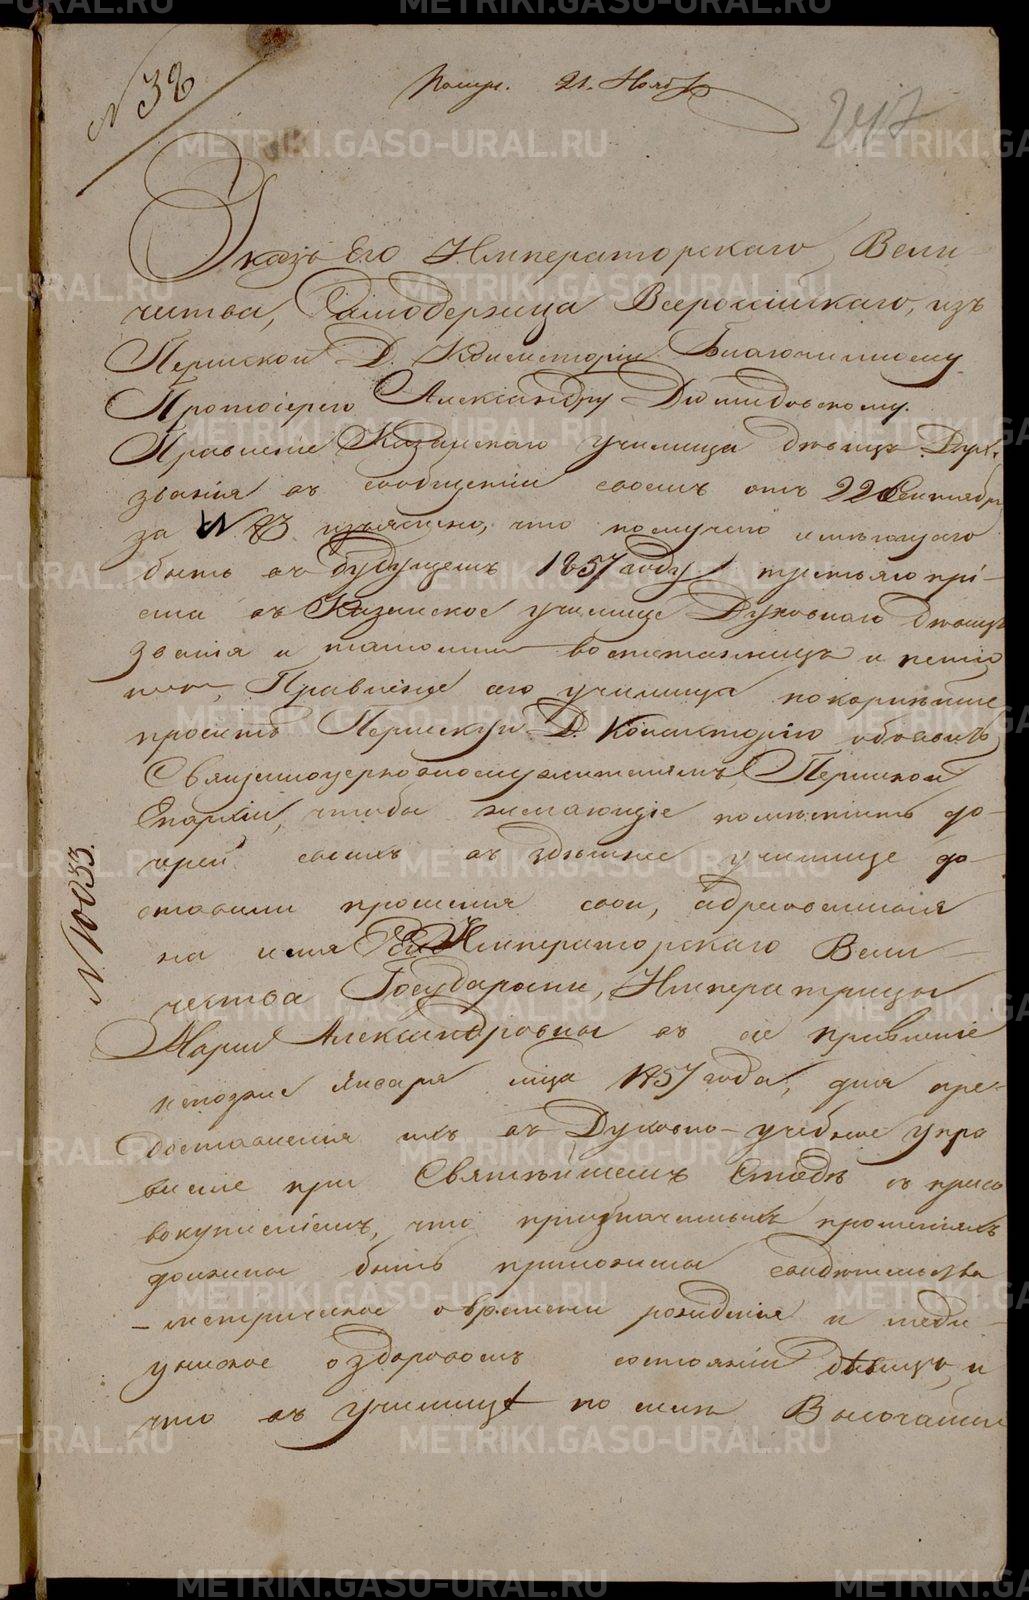 № 32
Получ. 21. Нояб
247
Указъ Его Императорскаго Вели-
чества, Самодержца Всероссійскаго, изъ
Пермской Д. Консисторіи Благочинному
Протоіерею Александру
Правленіе Казанскаго училища дѣвицъ Дух.
званія въ сообщеніи своемъ отъ 22 Сентября
за № 83 изъяснило, что по случаю имѣющаго
быть въ будущемъ 1857 году третьяго прі-
ема въ Казанское училище Духовнаго дѣвицъ
званія и воспитанницъ и
Правленіе сего училища покорнѣйше
проситъ Пермскую Д. Консисторію объявить
Священноцерковнослужителямъ Пермской
Епархіи, чтобы желающіе помѣстить до-
черей своихъ въ здѣшнее училище до-
ставили прошенія свои, адресованныя
на имя Ея Императорскаго Вели-
чества Государыни, Императрицы
Маріи Александровны въ ея правленіе
непозже Января мца 1857 года, для пре-
доставленія ихъ въ Духовно-учебное Упра
вленіе при Святѣйшемъ Сѵнодѣ съ присо
вокупленіемъ, что при прошеніяхъ
должны быть приложены свидѣтельства
- метрическое о времени рожденія и меди-
цинское о здоровомъ состояніи дѣвицъ, и
что въ училищѣ по силѣ Высочайше
№ 10033.
METRIKI.GASO-URAL.RU